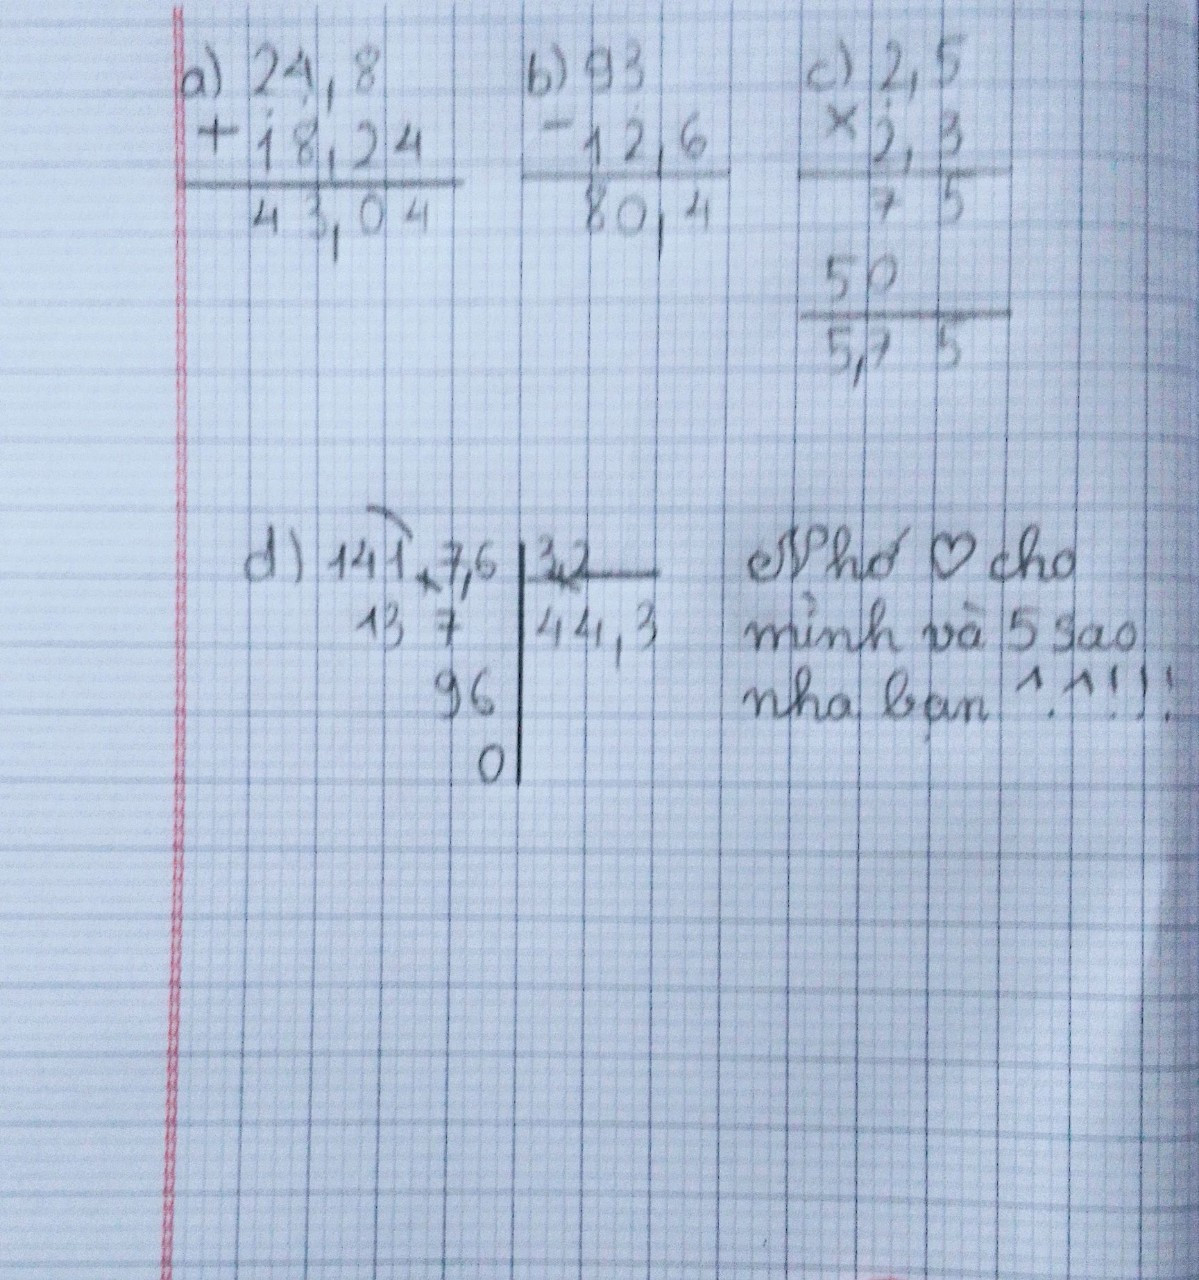 a) 24,8
+ 18,24
43,04
b) 93
- 12,6
80,4
c) 2,5
× 2,3
7 5
50
5,7 5
d) 141,7,6 | 3,2
13 7 | 44,3
96
0
Nhớ ♡ cho
mình và 5 sao
nha bạn ^.^!!!